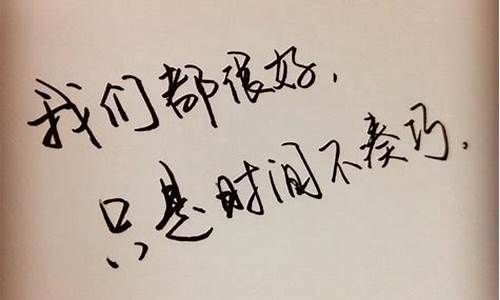 我们都很好,
只是时间不奏巧.